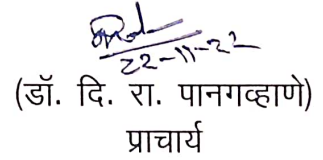 22-11-22
(डॉ. दि. रा. पानगव्हाणे)
प्राचार्य